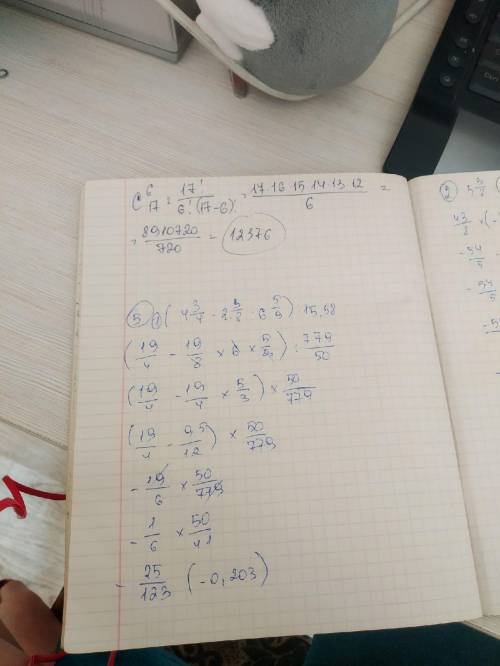 C⁶₁₇ = 17! / 6!(17-6)! = 17·16·15·14·13·12 / 6 =
= 8910720 / 720 = 12376
5) 1) (4 3/4 - 2 3/8 · 6 5/9) : 15,58
(19/4 - 19/8 × 6 × 5/9) : 779/50
(19/4 - 19/4 × 5/3) × 50/779
(19/4 - 95/12) × 50/779
- 19/6 × 50/779
- 1/6 × 50/41
- 25/123 (-0,203)
2)
43/8 × (-
- 54/5
- 54/5